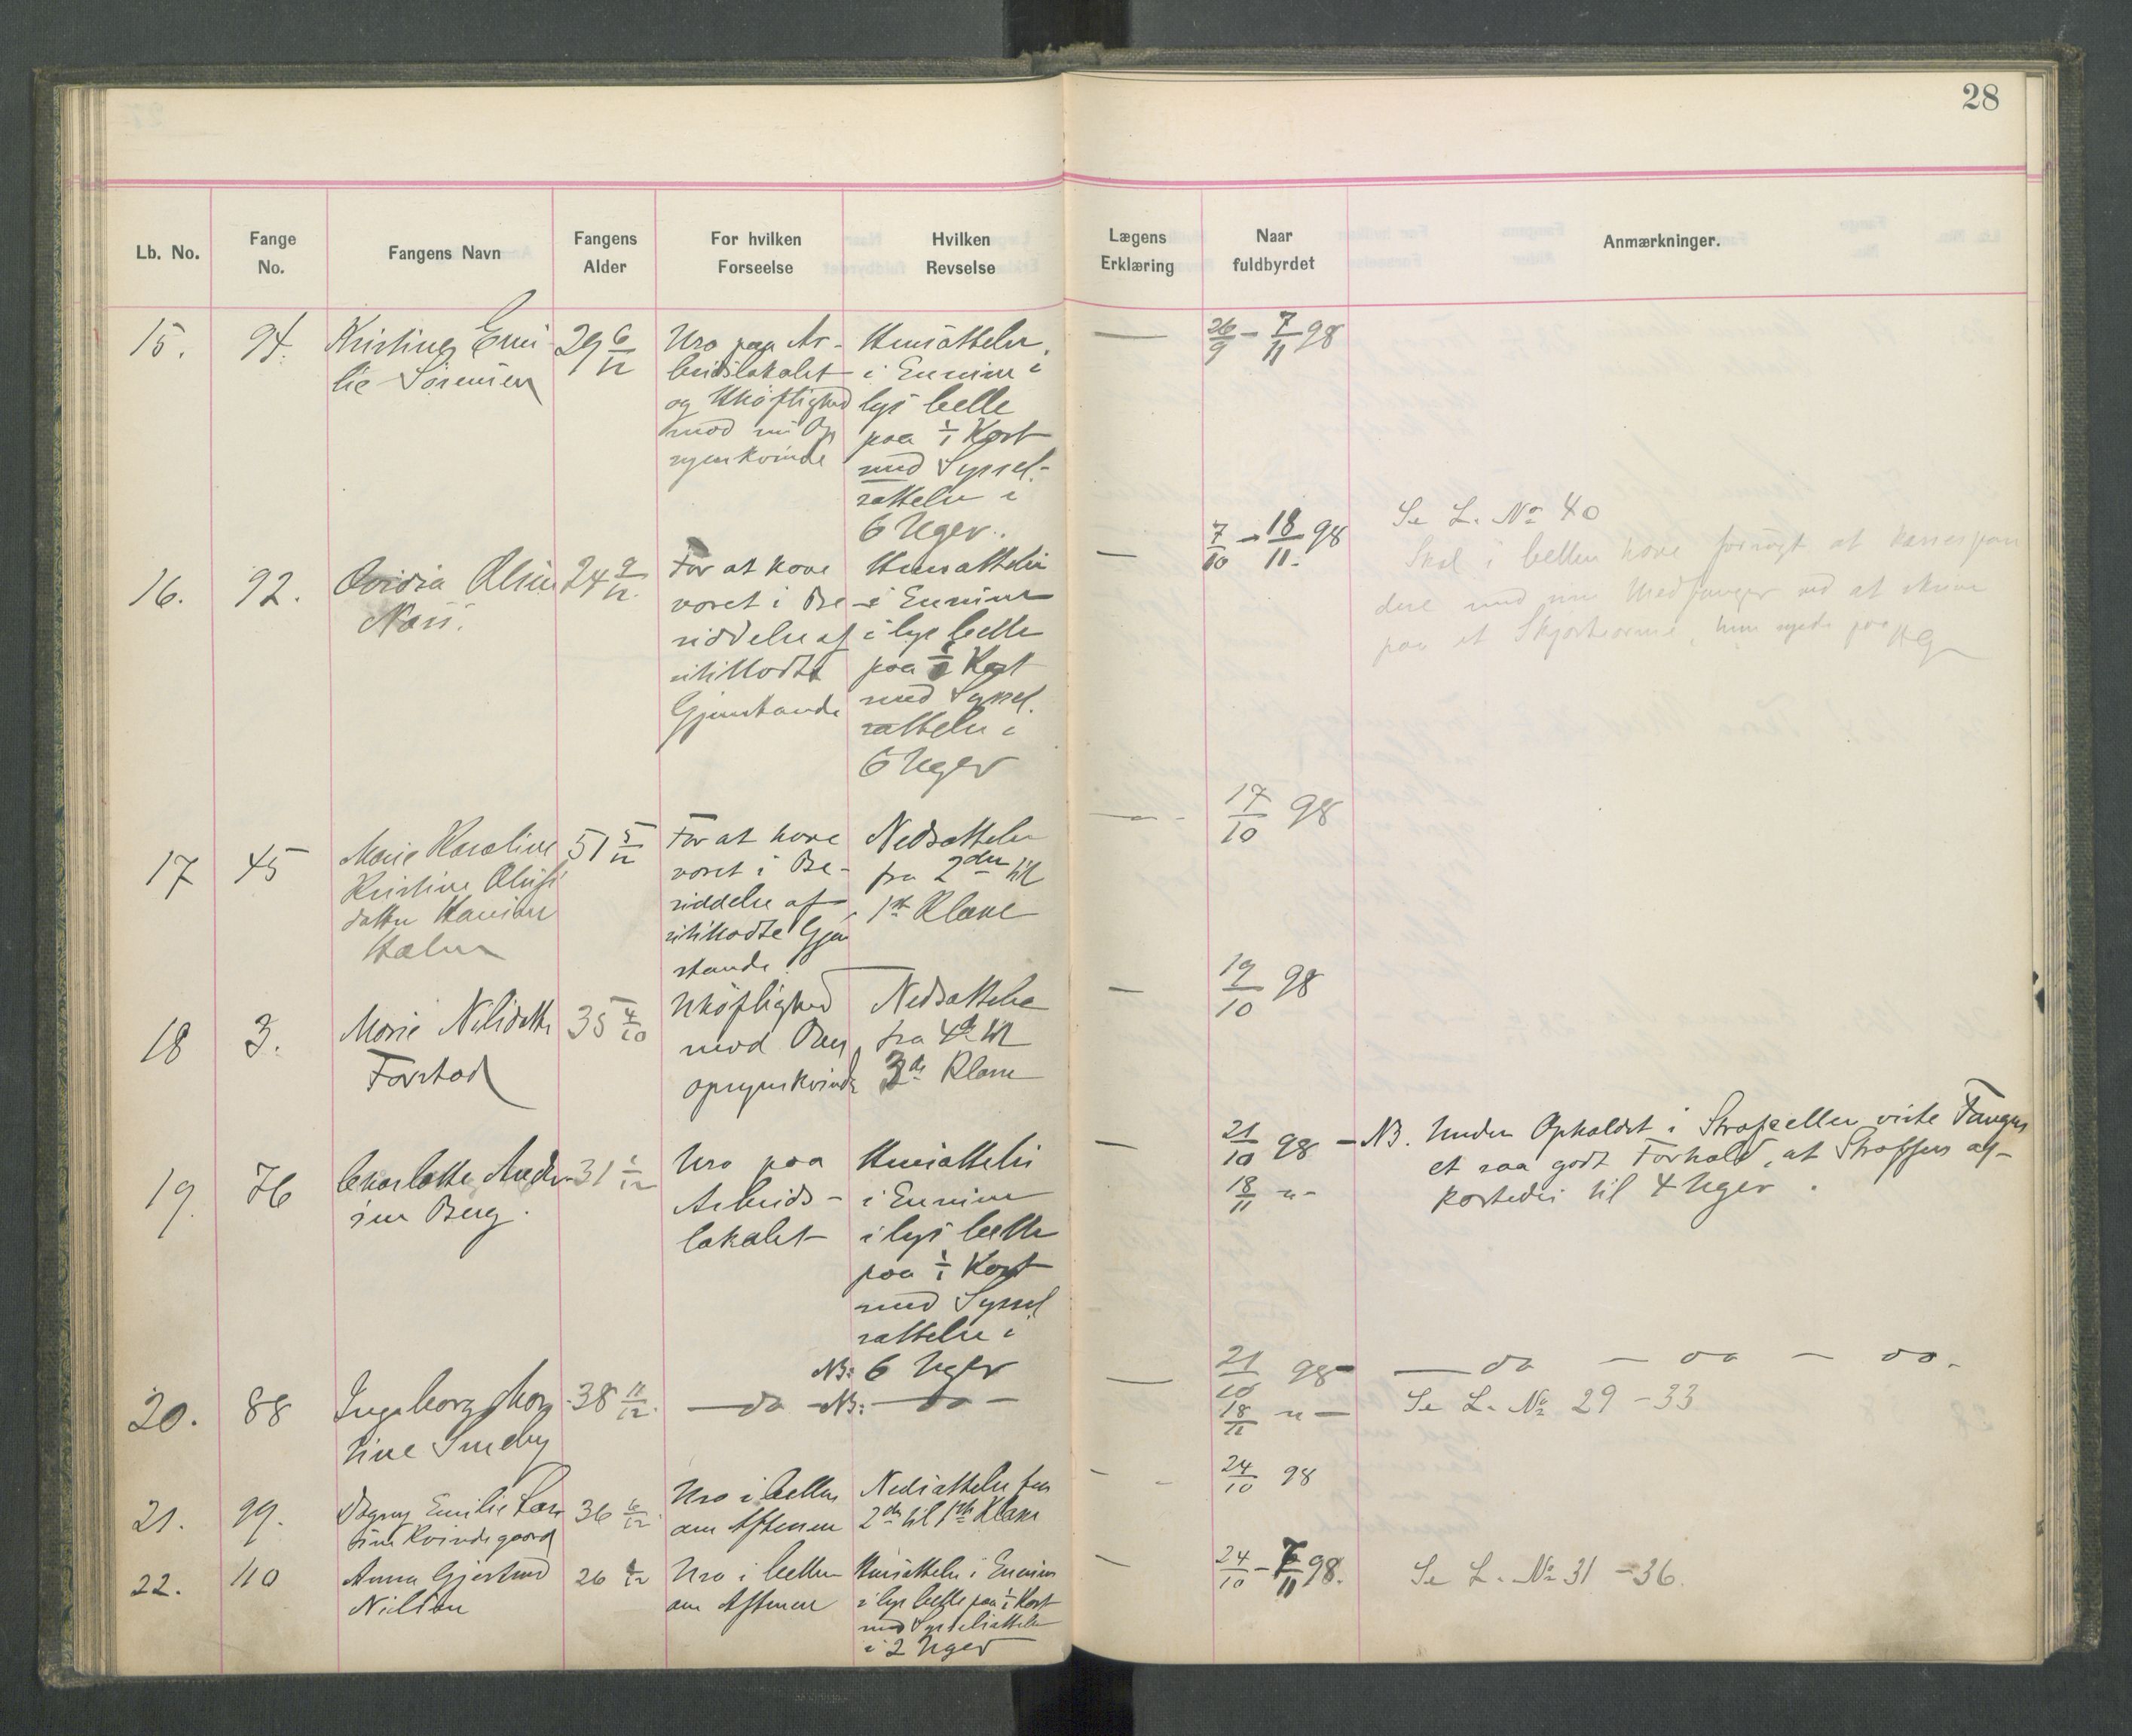 28
Lb. No.
Fange No.
Fangens Navn
Fangens Alder
For hvilken Forseelse
Hvilken Revselse
Lægens Erklæring
Naar fuldbyrdet
Anmærkninger.
15.
94.
Kristine Emi-
lie Sørensen
29 6/12
Uro paa Ar-
beidslokalet
og Uhøflighed
mod en Op
synskvinde
Hensættelse
i Eenrum i
lys Celle
paa 1/1 Kost
med Syssel-
sættelse i
6 Uger.
—
26/9 - 7/11 98
16.
92.
Ovidia Olsen
Næss.
24 9/12
For at have
været i Be-
siddelse af
utilladte
Gjenstande
Hensættelse
i Eenrum
i lys Celle
paa 1/1 Kost
med Syssel.
sættelse i
6 Uger
—
7/10 - 18/11 98
Se L. No 40
Skal i Cellen have forsøgt at korrespon
dere med en Medfange ved at skrive
paa et Skjorteærme, hun syede paa
17
45
Marie Karoline
Kristine Olufs
datter Hansine
Holm
51 5/12
For at have
været i Be-
siddelse af
utilladte Gjen
stande.
Nedsættelse
fra 2den til
1ste Klasse
—
17/10 98
18
3.
Marie Nilsdatter
Forstad
35 4/10
Uhøflighed
mod Over
opsynskvinde
Nedsættelse
fra 4de til
3de Klasse
—
19/10 98
19.
76
Charlotte Ander-
sen Berg.
31 1/12
Uro paa
Arbeids-
lokalet
Hensættelse
i Eenrum
i lys Celle
paa 1/1 Kost
med Syssel
sættelse i
NB: 6 Uger
—
21/10 98
18/11 -"-
-NB. Under Opholdet i Strafcellen viste Fangen
et saa godt Forhold, at Straffen af-
kortedes til 4 Uger.
20.
88
Ingeborg Mar
tine Smeby
38 11/12.
— do —
NB: — do —
—
21/10 98-
18/11 -"-
— do — do — do.
Se L. No 29 - 33
21.
99.
Dagny Emilie Lar
sine Kvindegaard
36 6/12
Uro i Cellen
om Aftenen
Nedsættelse fra
2den til 1ste Klasse
—
24/10 98
22.
110
Anna Gjertrud
Nielsen
26
Uro i Cellen
om Aftenen
Hensættelse i Eenrum
i lys Celle paa 1/1 Kost
med Sysselsættelse
i 2 Uger
—
24/10 - 7/11 98.
Se L. No 31 - 36.